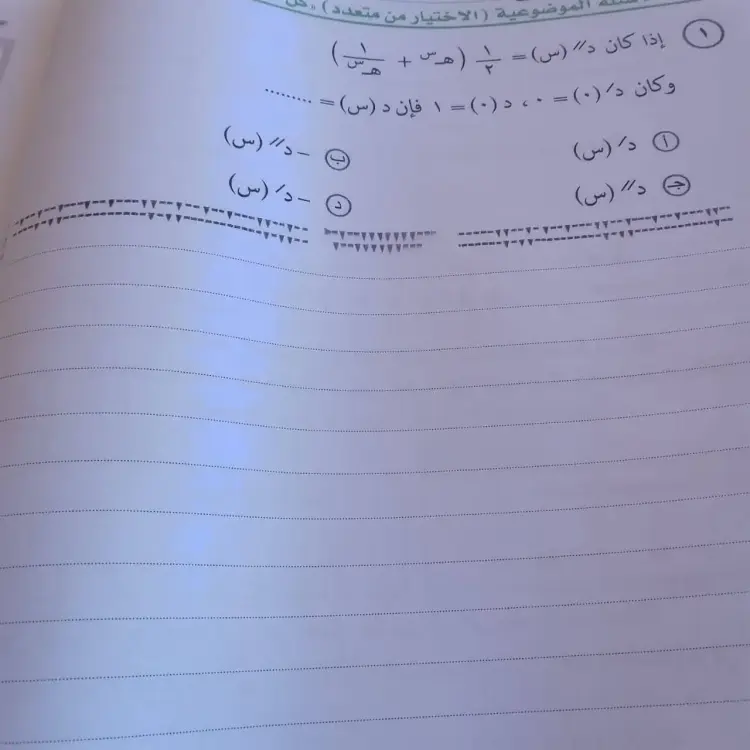 الموضوعية (الاختيار من متعدد)
١ إذا كان د//(س) = ١/٢ (هـ^س + ١/هـ^س)
وكان د/(٠) = ٠ ، د(٠) = ١ فإن د(س) = ........
أ د/(س) ب – د//(س)
جـ د//(س) د – د/(س)